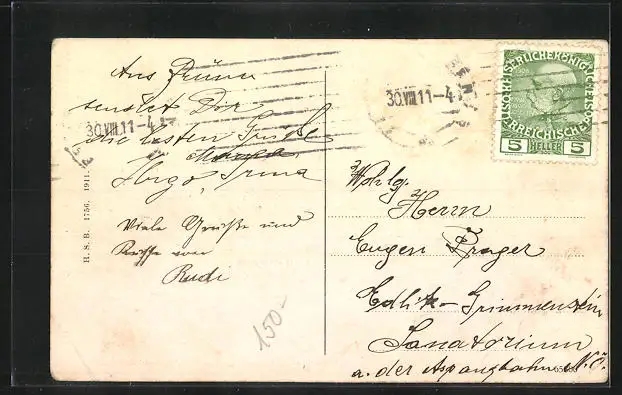 Aus Brünn
sendet Dir
die besten Grüße
Irma
Viele Grüße und
Küsse von
Rudi
H. S. B. 1756. 1911.
150-
30.VIII.11-4
30.VIII.11-4
KAISERLICHE KÖNIGLICHE ÖSTERREICHISCHE
5 HELLER 5
Wohlg.
Herrn
Eugen Prager
Edlitz-Grimmenstein
Sanatorium
a. der Aspangbahn N.Ö.